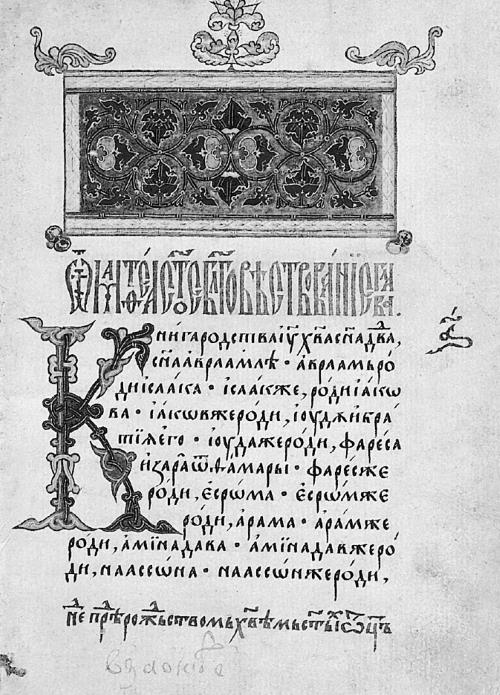 Ѿ маѳеа ст҃ое бл҃говѣствованїе глава.
Книга родства іу҃ х҃ва сн҃а дв҃да,
сн҃а авраамлѣ · авраамь ро́
ди ісаака · ісаак же, роди іако
ва · іаков же роди, іоудѫ и бра
тїѧ его · іоуда же роди, фареса
и зара ѿ ѳамары · фарес же
роди, есрома · есрѡм же
роди, арама · арам же
роди, амїнадава · амїнадав же ро́
ди, наассѡна · наассѡн же роди,
нⷣе прѣⷤ рожⷣьствомь хв҃ѣмь ст҃ыⷯ ѡц҃ъ